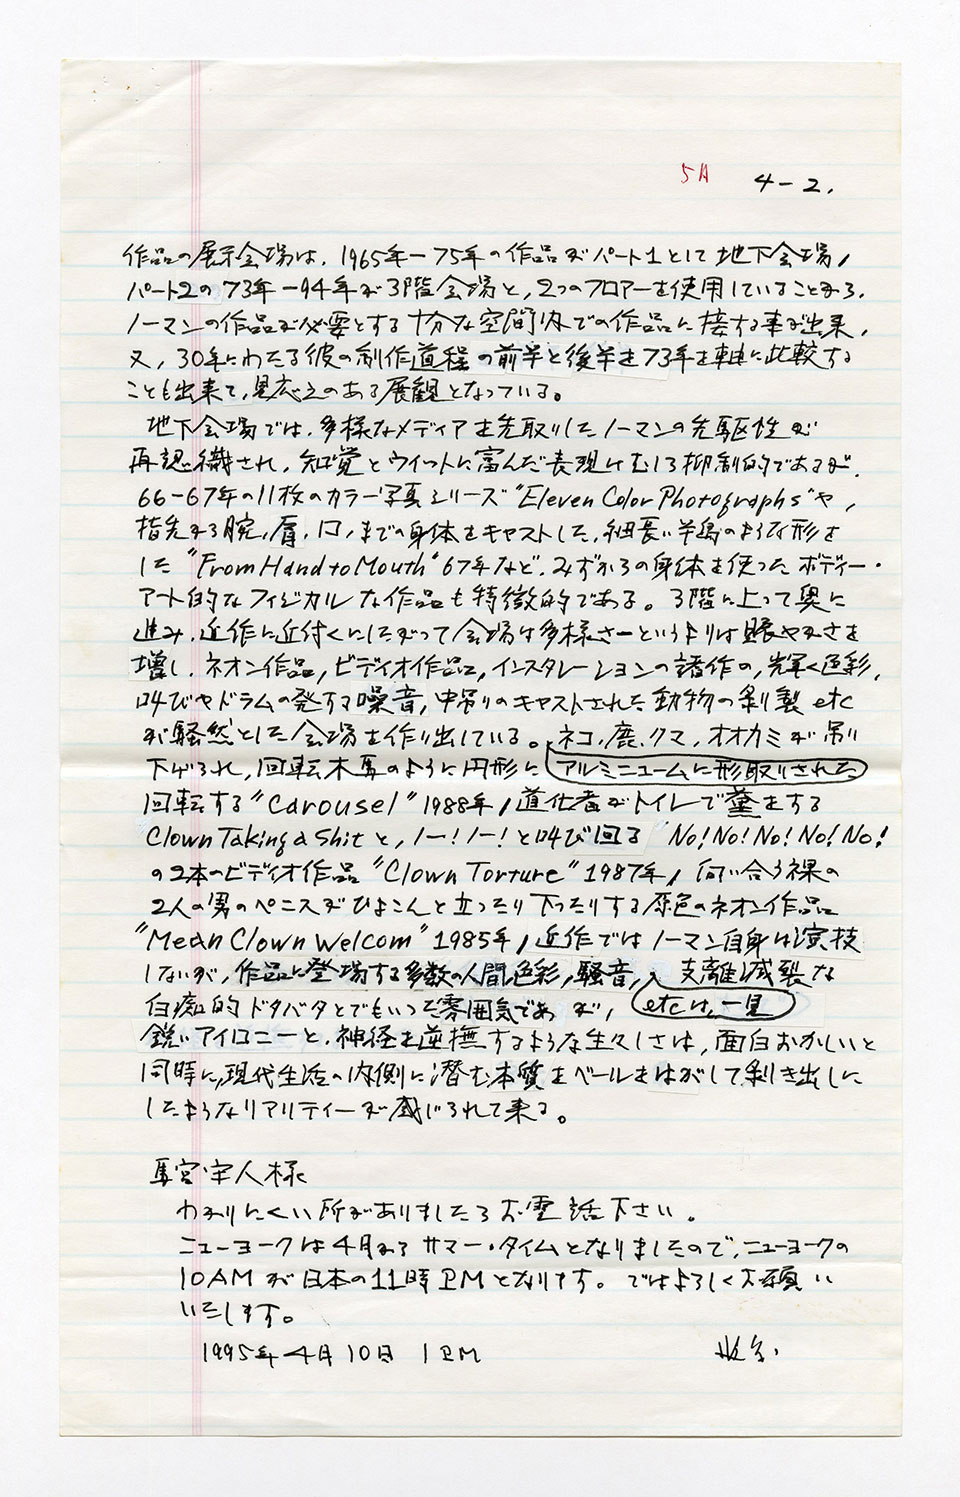 5A 4-2.
作品の展示会場は、1965年-75年の作品がパート1として地下会場,
パート2の73年-94年が3階会場と,2つのフロアーを使用していることから,
ノーマンの作品が必要とする十分な空間内での作品に接する事が出来,
又,30年にわたる彼の制作道程の前半と後半を73年を軸に比較する
ことも出来て,見応えのある展観となっている。
地下会場では,多様なメディアを先取りしたノーマンの先駆性が
再認識され,知覚とウィットに富んだ表現はむしろ抑制的であるが,
66-67年の11枚のカラー写真シリーズ"Eleven Color Photographs"や,
指先から腕,肩,口,までの身体をキャストした,細長い半島のような形を
した"From Hand to Mouth"67年など,みずからの身体を使ったボディー・
アート的なフィジカルな作品も特徴的である。3階に上って奥に
進み,近作に近付くにしたがって会場は多様さーというよりは賑やかさを
増し,ネオン作品,ビディオ作品,インスタレーションの諸作の,輝く色彩,
叫びやドラムの発する噪音,中吊りのキャストされた動物の剥製etc
が騒然とした会場を作り出している。ネコ,鹿,クマ,オオカミが吊り
下げられ,回転木馬のように円形に アルミニュームに形取りされた
回転する"Carousel"1988年,道化者がトイレで糞をする
Clown Taking a Shitと,ノー!ノー!と叫び回る No! No! No! No! No!
の2本のビディオ作品"Clown Torture"1987年,向い合う裸の
2人の男のペニスがぴょこんと立ったり下ったりする原色のネオン作品
"Mean Clown Welcom"1985年,近作ではノーマン自身は演技
しないが,作品に登場する多数の人間,色彩,騒音, 支離滅裂な
白痴的ドタバタとでもいった雰囲気であ が, etcは,一見
鋭いアイロニーと,神経を逆撫するような生々しさは,面白おかしいと
同時に,現代生活の内側に潜む本質をベールをはがして剥き出しに
したようなリアリティーが感じられて来る。
馬宮守人様
わかりにくい所がありましたらお電話下さい。
ニューヨークは4月からサマー・タイムとなりましたので,ニューヨークの
10AMが日本の11時PMとなります。ではよろしくお願い
いたします。
1995年4月10日 1PM